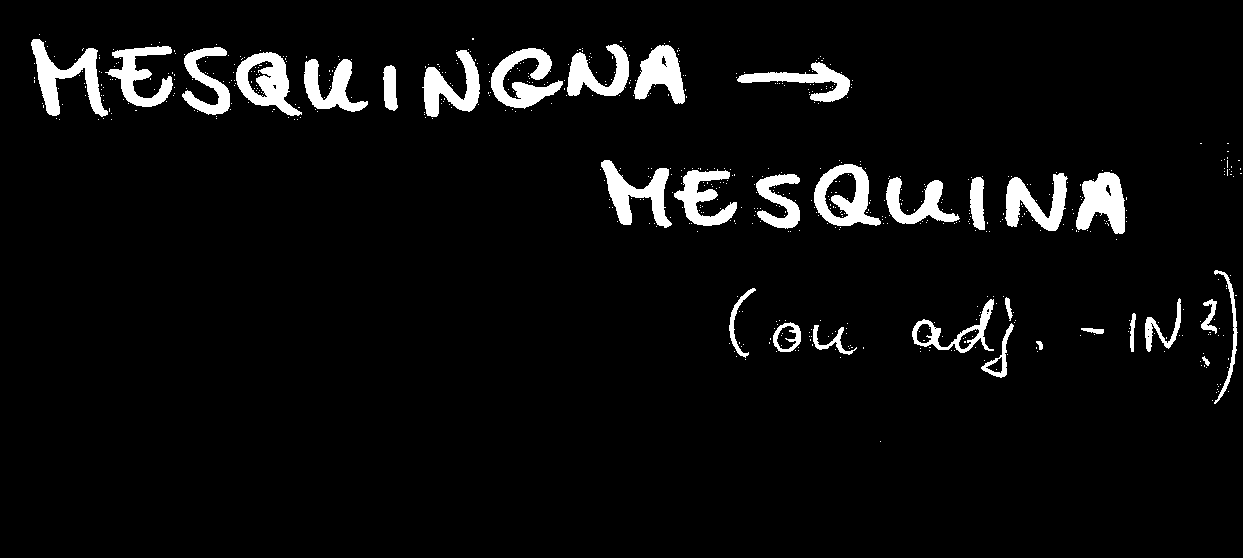 MESQUINGNA →
MESQUINA
(ou adj. -IN?)